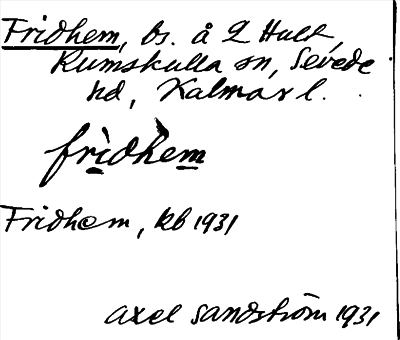 Fridhem, bs. å L Hult,
Rumskulla sn, Sevede
hd, Kalmar l.
frìdhèm
Fridhem, kb 1931
Axel Sandström 1931